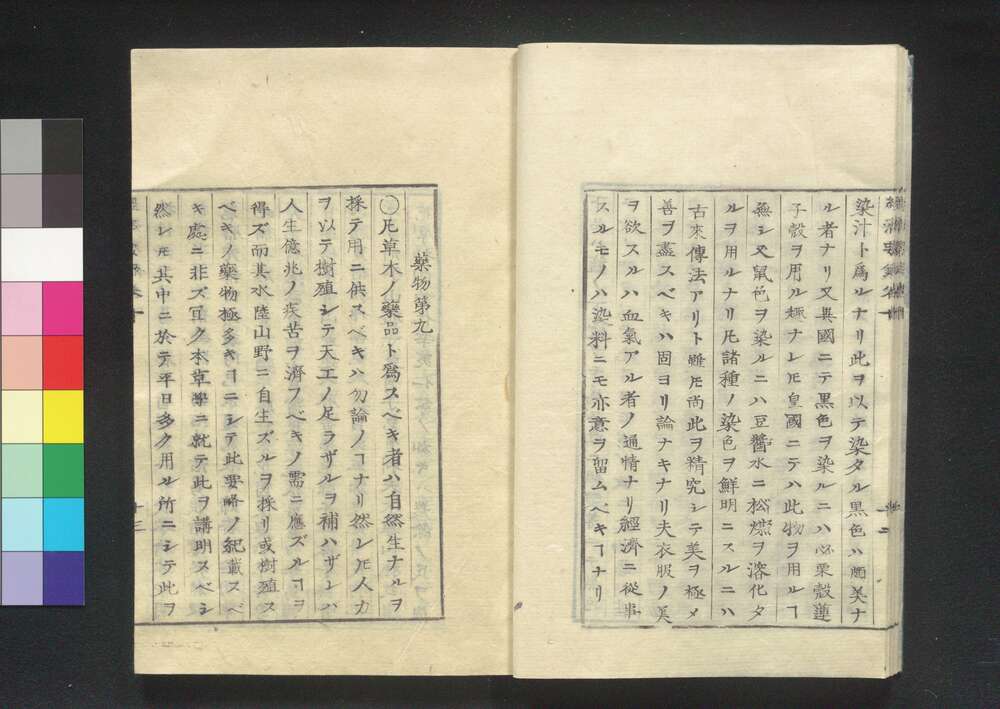 染汁ト爲ルナリ此ヲ以テ染タル黒色ハ頗美ナ
ル者ナリ又異國ニテ黒色ヲ染ルニハ必栗殼蓮
子殼ヲ用ル趣ナレ𪜈皇國ニテハ此物ヲ用ルヿ
無シ又鼠色ヲ染ルニハ豆醬水ニ松烟ヲ溶化タ
ルヲ用ルナリ凡諸種ノ染色ヲ鮮明ニスルニハ
古來傳法アリト雖𪜈尚此ヲ精究シテ美ヲ極メ
善ヲ盡スベキハ固ヨリ論ナキナリ夫衣服ノ美
ヲ欲スルハ血氣アル者ノ通情ナリ經濟ニ從事
スルモノハ染料ニモ亦意ヲ留ムベキヿナリ
藥物第九
○凡草木ノ藥品ト爲スベキ者ハ自然生ナルヲ
採テ用ニ供スベキハ勿論ノヿナリ然レ𪜈人力
ヲ以テ樹殖シテ天工ノ足ラザルヲ補ハザレバ
人生億兆ノ疾苦ヲ濟フベキノ需ニ應ズルヿヲ
得ズ而其水陸山野ニ自生ズルヲ採リ或樹殖ス
ベキノ藥物極多キヿニシテ此要略ノ紀載スベ
キ處ニ非ズ冝ク本草學ニ就テ此ヲ講明スベシ
然レ𪜈其中ニ於テ年日多ク用ル所ニシテ此ヲ
十三